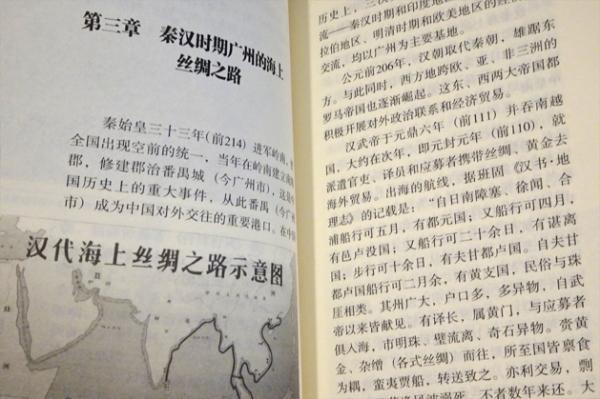 第三章 秦汉时期广州的海上
丝绸之路
秦始皇三十三年(前214)进军岭南,
全国出现空前的统一,当年在岭南建立南
郡,修建郡治番禺城(今广州市),这是
国历史上的重大事件,从此番禺(今广州
市)成为中国对外交往的重要港口。在中
汉代海上丝绸之路示意图
历史上,三次
流——秦汉时期和印度地
拉伯地区、明清时期和欧美地区的经
交流,均以广州为主要基地。
公元前206年,汉朝取代秦朝,雄踞东
方。与此同时,西方地跨欧、亚、非三洲的
罗马帝国也逐渐崛起。这东、西两大帝国都
积极开展对外政治联系和经济贸易。
汉武帝于元鼎六年(前111)并吞南越
国,大约在次年,即元封元年(前110),就
派遣官吏、译员和应募者携带丝绸、黄金去
海外贸易。出海的航线,据班固《汉书·地
理志》的记载是:“自日南障塞、徐闻、合
浦船行可五月,有都元国;又船行可四月,
有邑卢没国;又船行可二十余日,有谌离
国;步行可十余日,有夫甘都卢国。自夫甘
都卢国船行可二月余,有黄支国,民俗与珠
崖相类。其州广大,户口多,多异物,自武
帝以来皆献见。有译长,属黄门,与应募者
俱入海,市明珠、璧流离、奇石异物。赍黄
金、杂缯(各式丝绸)而往,所至国皆禀食
为耦,蛮夷贾船,转送致之。亦利交易,剽
风波溺死,不者数年来还。大